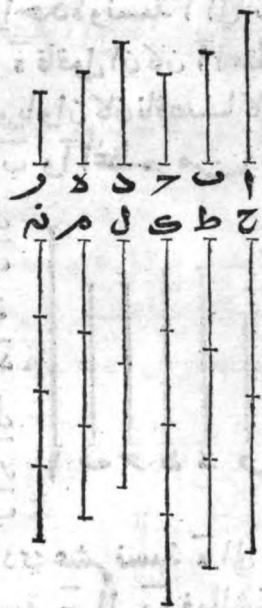 ا ب حـ د ه و
ح ط ك ل م ن